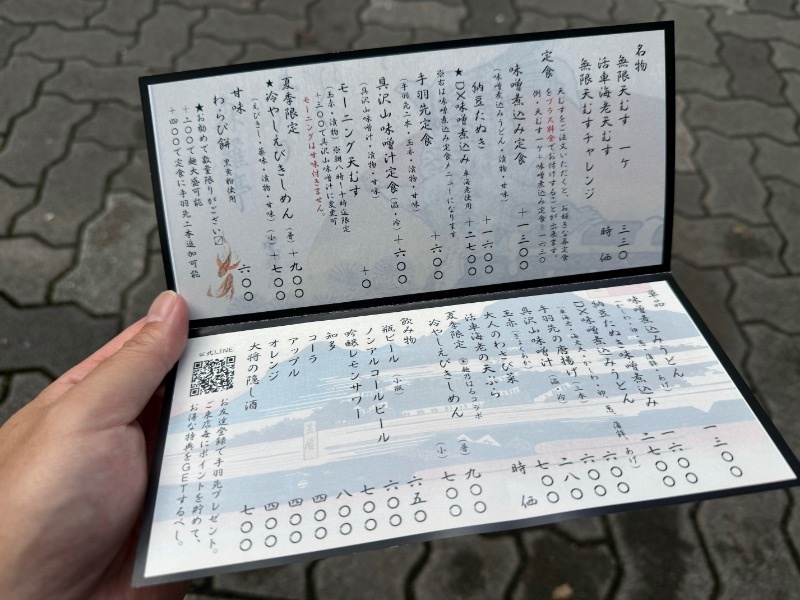 名物
無限天むす 一ケ 三三〇
活車海老天むす 時価
無限天むすチャレンジ
定食
天むすをご注文いただくと、お好きな各定食
をプラス料金でお付けすることが出来ます。
例・天むす一ケ+味噌煮込み定食=一六三〇
味噌煮込み定食 +一三〇〇
(味噌煮込みうどん・漬物・甘味)
納豆たぬき +一六〇〇
★DX味噌煮込み 車海老使用 +二七〇〇
※右は味噌煮込み定食メニューになります
手羽先定食 +一六〇〇
(手羽先二本・玉赤・漬物・甘味)
具沢山味噌汁定食(温・冷) +六〇〇
(具沢山味噌汁・漬物・甘味)
モーニング天むす +〇
(玉赤・漬物)※朝八時〜十時迄限定
+三〇〇で具沢山味噌汁に変更可
モーニングは甘味付きません。
夏季限定
★冷やしえびきしめん (普) +九〇〇
(えびきし・薬味・漬物・甘味) (小) +七〇〇
甘味
わらび餅 黒黄粉使用 六〇〇
★お勧めで数量限りがございます
+二〇〇で麺大盛可能
+四〇〇で定食に手羽先二本追加可能
単品
味噌煮込みうどん 一三〇〇
納豆たぬき味噌煮込みうどん 一六〇〇
DX味噌煮込みうどん 二七〇〇
手羽先の唐揚げ(二本) 六〇〇
具沢山味噌汁 (温・冷) 六〇〇
玉赤
大人のわさび菜 七〇〇
活車海老の天ぷら 時価
夏季限定
冷やしえびきしめん (普) 九〇〇
(小) 七〇〇
飲み物
瓶ビール (小瓶) 六五〇
ノンアルコールビール 六〇〇
吟醸レモンサワー 七〇〇
知多 八〇〇
コーラ 四〇〇
アップル 四〇〇
オレンジ 四〇〇
大将の隠し酒 七〇〇
公式LINE
お友達登録で手羽先プレゼント。
ご来店毎にポイントを貯めて、
お得な特典をGETするべし。